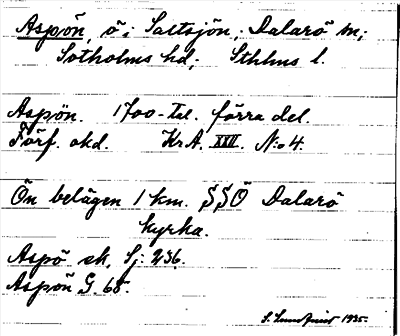 Aspön, ö i Saltsjön, Dalarö sn;
Sotholms hd, Sthlms l.
Aspön. 1700-tal. förra del.
Förf. okd. Kr A. XXII. N:o 4.
Ön belägen 1 km. SSÖ Dalarö
kyrka.
Aspö sk. Sj: 236.
Aspön G. 68.
S. Lundqvist 1935.